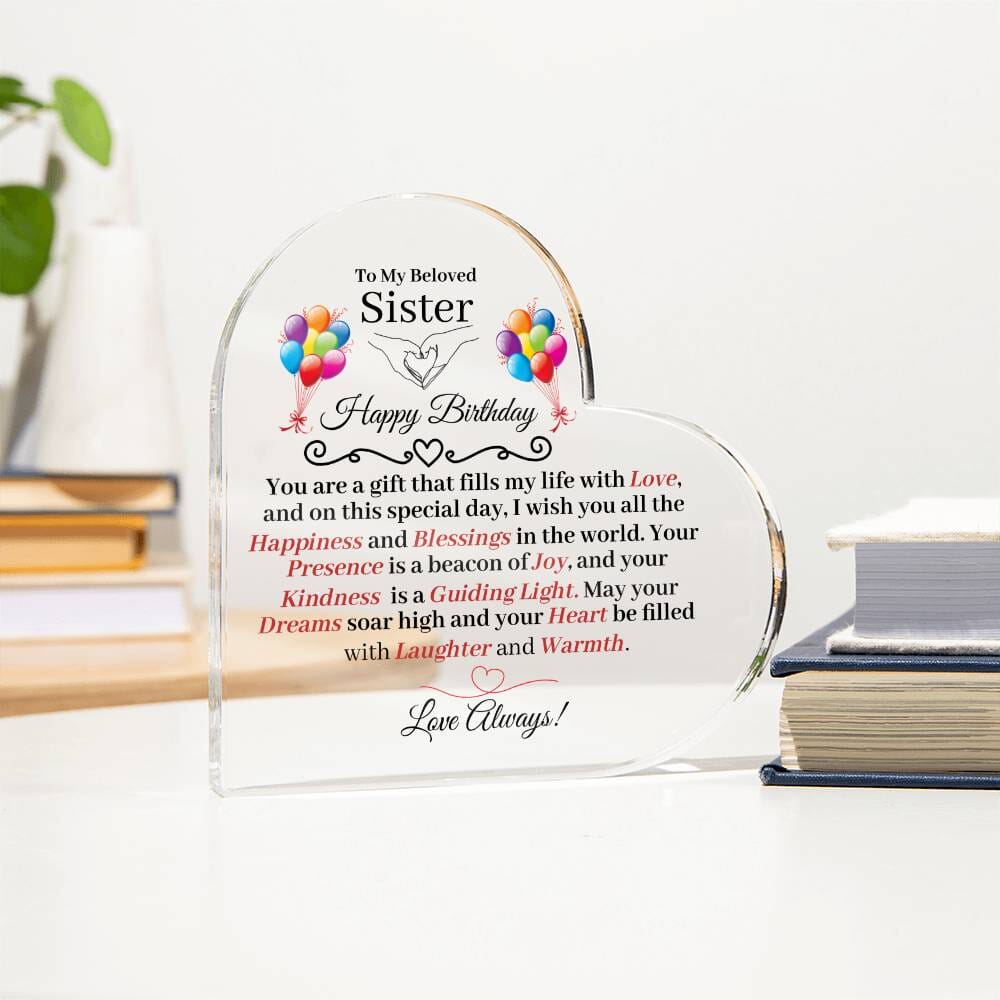 To My Beloved
Sister
Happy Birthday
You are a gift that fills my life with Love,
and on this special day, I wish you all the
Happiness and Blessings in the world. Your
Presence is a beacon of Joy, and your
Kindness is a Guiding Light. May your
Dreams soar high and your Heart be filled
with Laughter and Warmth.
Love Always!